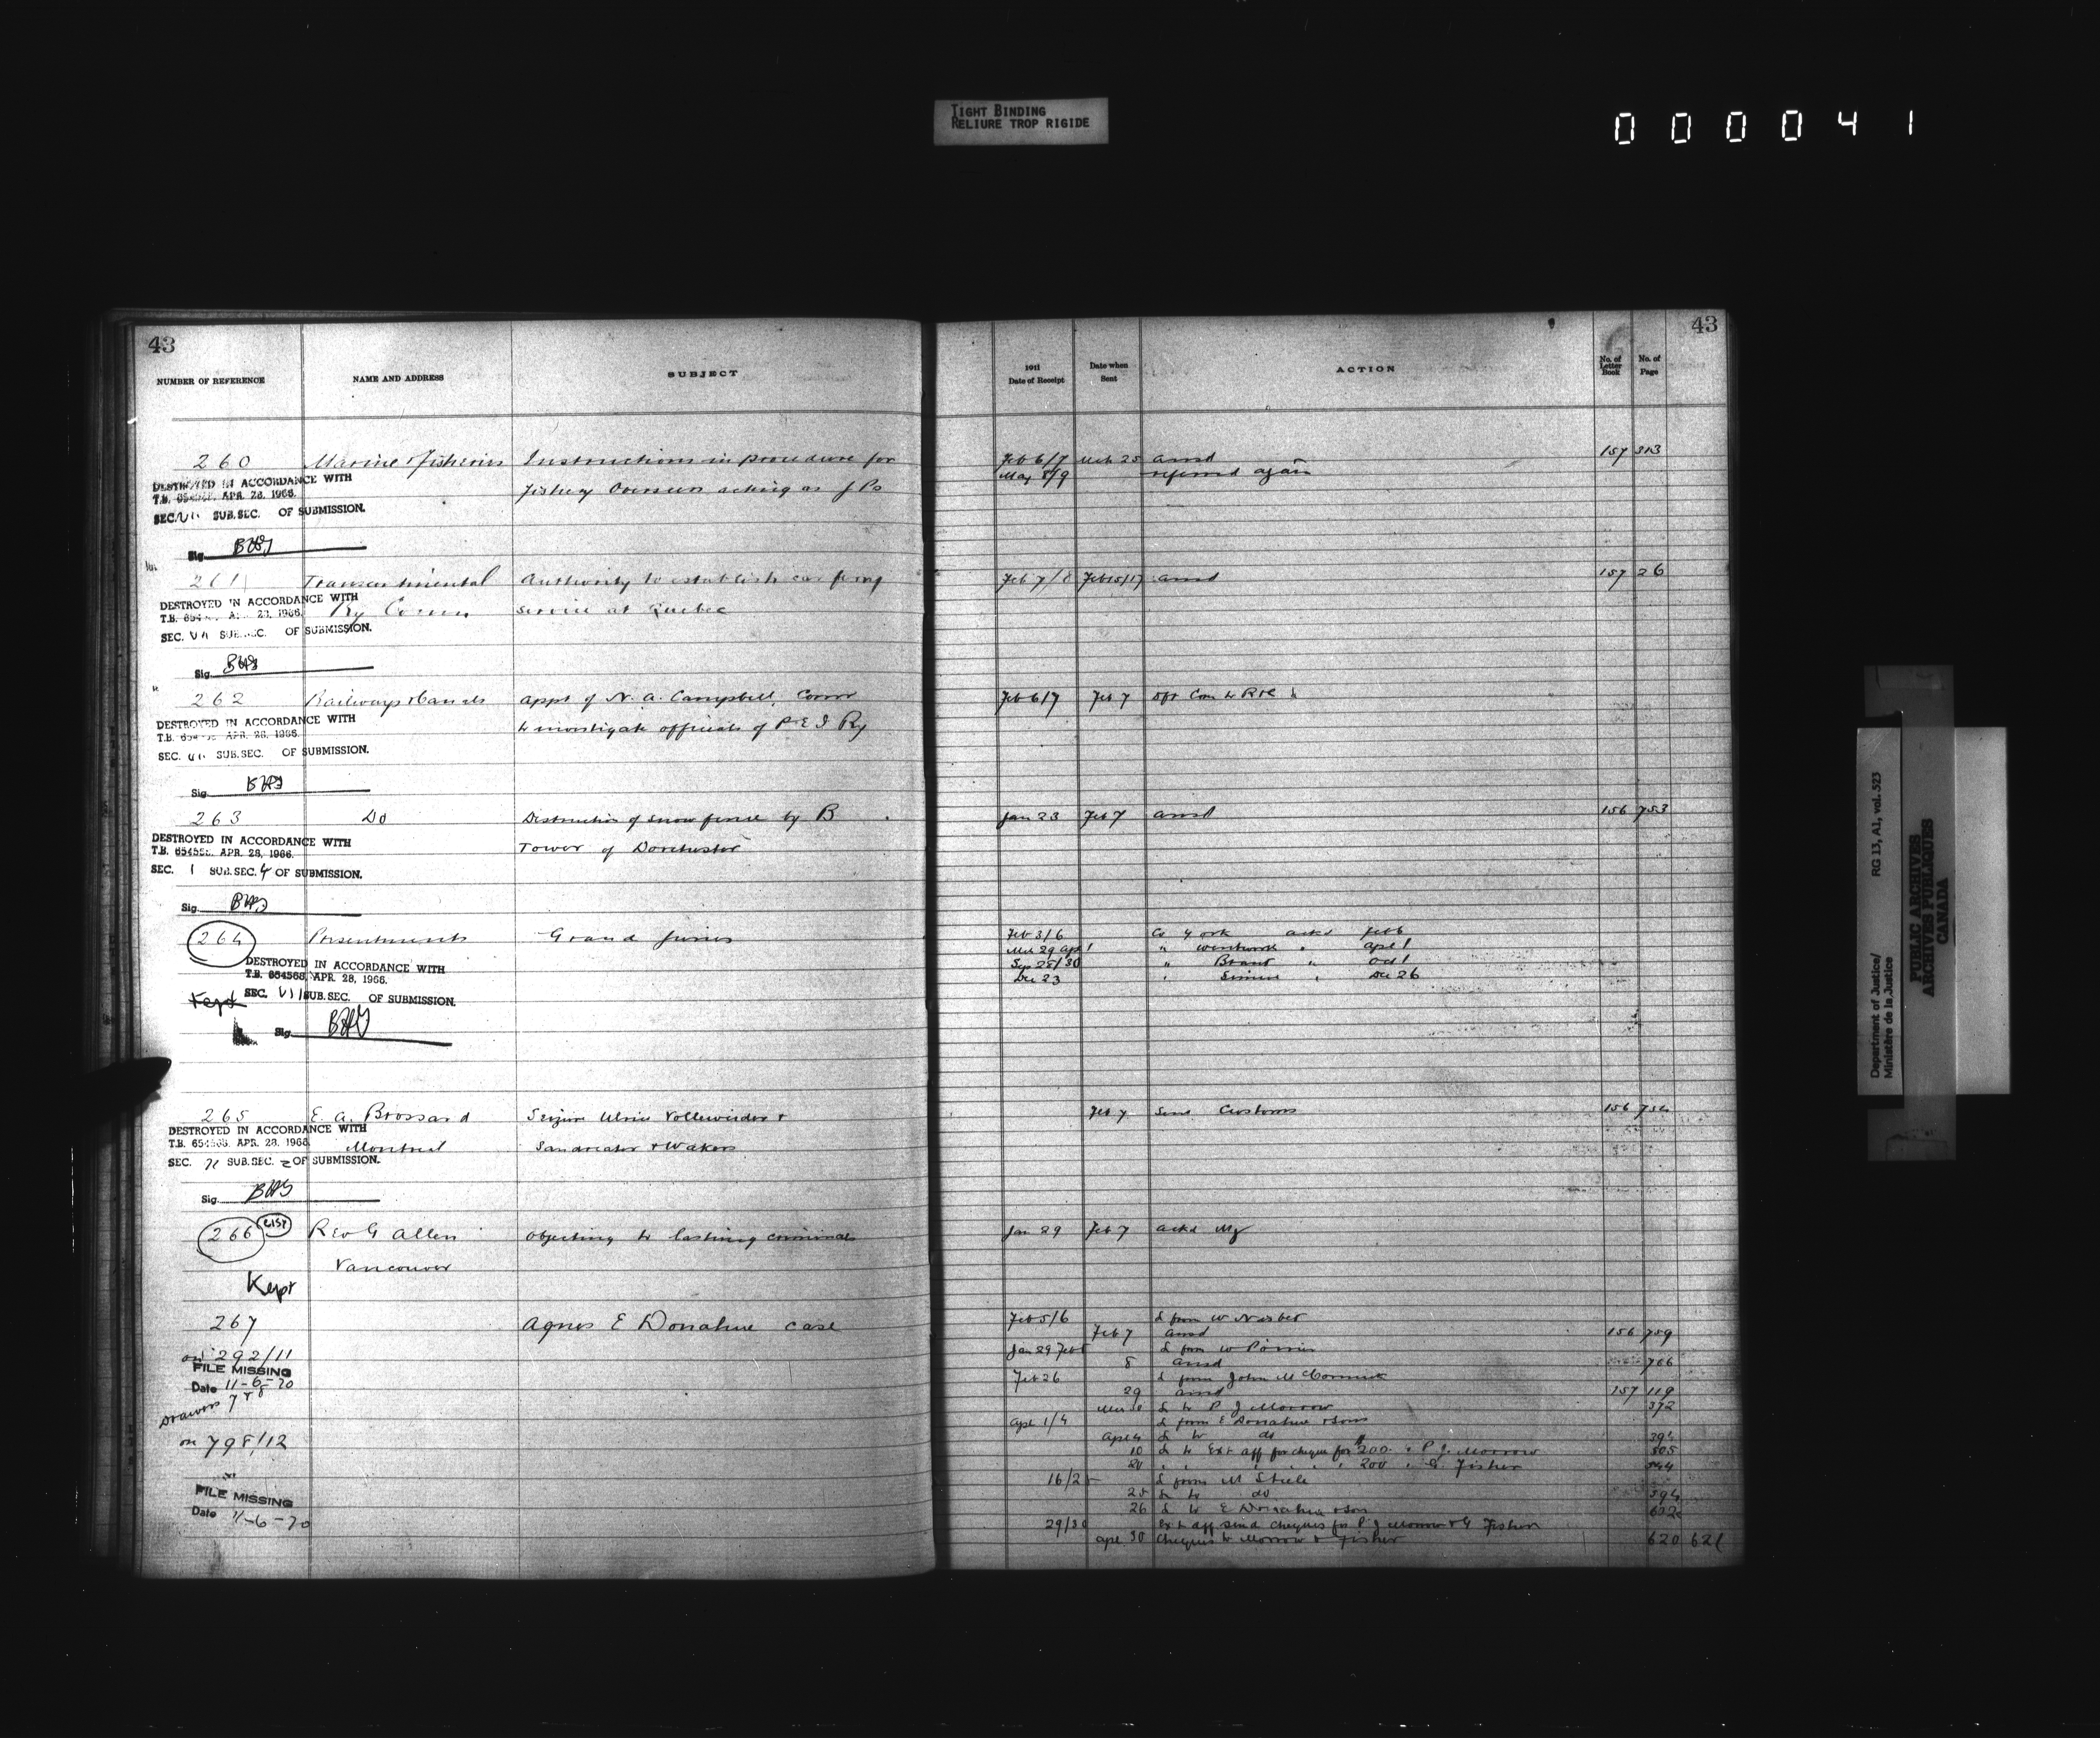 TIGHT BINDING
RELIURE TROP RIGIDE
000041
43
NUMBER OF REFERENCE NAME AND ADDRESS SUBJECT
260 Marine & Fisheries Instructions in procedure for
DESTROYED IN ACCORDANCE WITH
Fishery Overseers acting as J Ps
T.B. APR. 28, 1966.
SEC. VII SUB.SEC. OF SUBMISSION.
Sig.
261 Transcontinental Authority to establish car ferry
DESTROYED IN ACCORDANCE WITH
Ry Comm service at Quebec
T.B. 654 28, 1966.
SEC. VII SUB.SEC. OF SUBMISSION.
Sig.
262 Railways & Canals Appt of N. A. Campbell, Comr
DESTROYED IN ACCORDANCE WITH
to investigate officials of P E I Ry
T.B. APR. 28, 1966.
SEC. SUB.SEC. OF SUBMISSION.
Sig.
263 Do Destruction of snow fence by B
DESTROYED IN ACCORDANCE WITH
Tower of Dorchester
T.B. APR. 28, 1966.
SEC. 1 SUB.SEC. 4 OF SUBMISSION.
Sig.
264 Presentments Grand Juries
DESTROYED IN ACCORDANCE WITH
T.B. 654568, APR. 28, 1966.
Kept SEC. VII SUB.SEC. OF SUBMISSION.
Sig.
265 E. A. Brossard Seizure Ulric &
DESTROYED IN ACCORDANCE WITH
T.B. APR. 28, 1966
Montreal
SEC. SUB.SEC. 2 OF SUBMISSION.
Sig.
266 Rev G Allen Objecting to lashing criminals
Vancouver
Kept
267 Agnes E Donahue case
on 292/11
FILE MISSING
Date 11-6-70
Drawers 7 & 8
on 798/12
FILE MISSING
Date 11-6-70
43
1911
Date of Receipt Date when Sent ACTION No. of Letter Book No. of Page
Feb 6/7 Mch 25 ansd 157 313
May 8/9 referred again
Feb 7/8 Feb 15/17 ansd 157 26
Feb 6/7 Feb 7 dft Com to R & C
Jan 23 Feb 7 ansd 156 753
Feb 3/6 Co York ackd Feb 6
Mch 29 Apl 1 " Wentworth " Apl 1
Sep 28/30 " Brant " Oct 1
Dec 23 " Simcoe " Dec 26
Feb 7 Send Customs 156 754
Jan 29 Feb 7 ackd
Feb 5/6 L from W
Feb 7 ansd 156 759
Jan 29 Feb L from W Poirier
8 ansd 766
Feb 26 L from John McCormick
29 ansd 157 119
L to P J Morrow 372
Apl 1/4 L from E Donahue & Son
Apl 4 L to do
10 L to Ext Aff for cheque for $200. " P J. Morrow 505
20 " " " " " 200 " G. Fisher 544
L from M Steele
25 L to do 594
26 L to E Donahue & Son
29/30 Ext Aff send cheques for P J Morrow & G Fisher
Apl 30 Cheques to Morrow & Fisher 620 621
Department of Justice/
Ministère de la Justice
RG 13, A1, vol. 523
PUBLIC ARCHIVES
ARCHIVES PUBLIQUES
CANADA